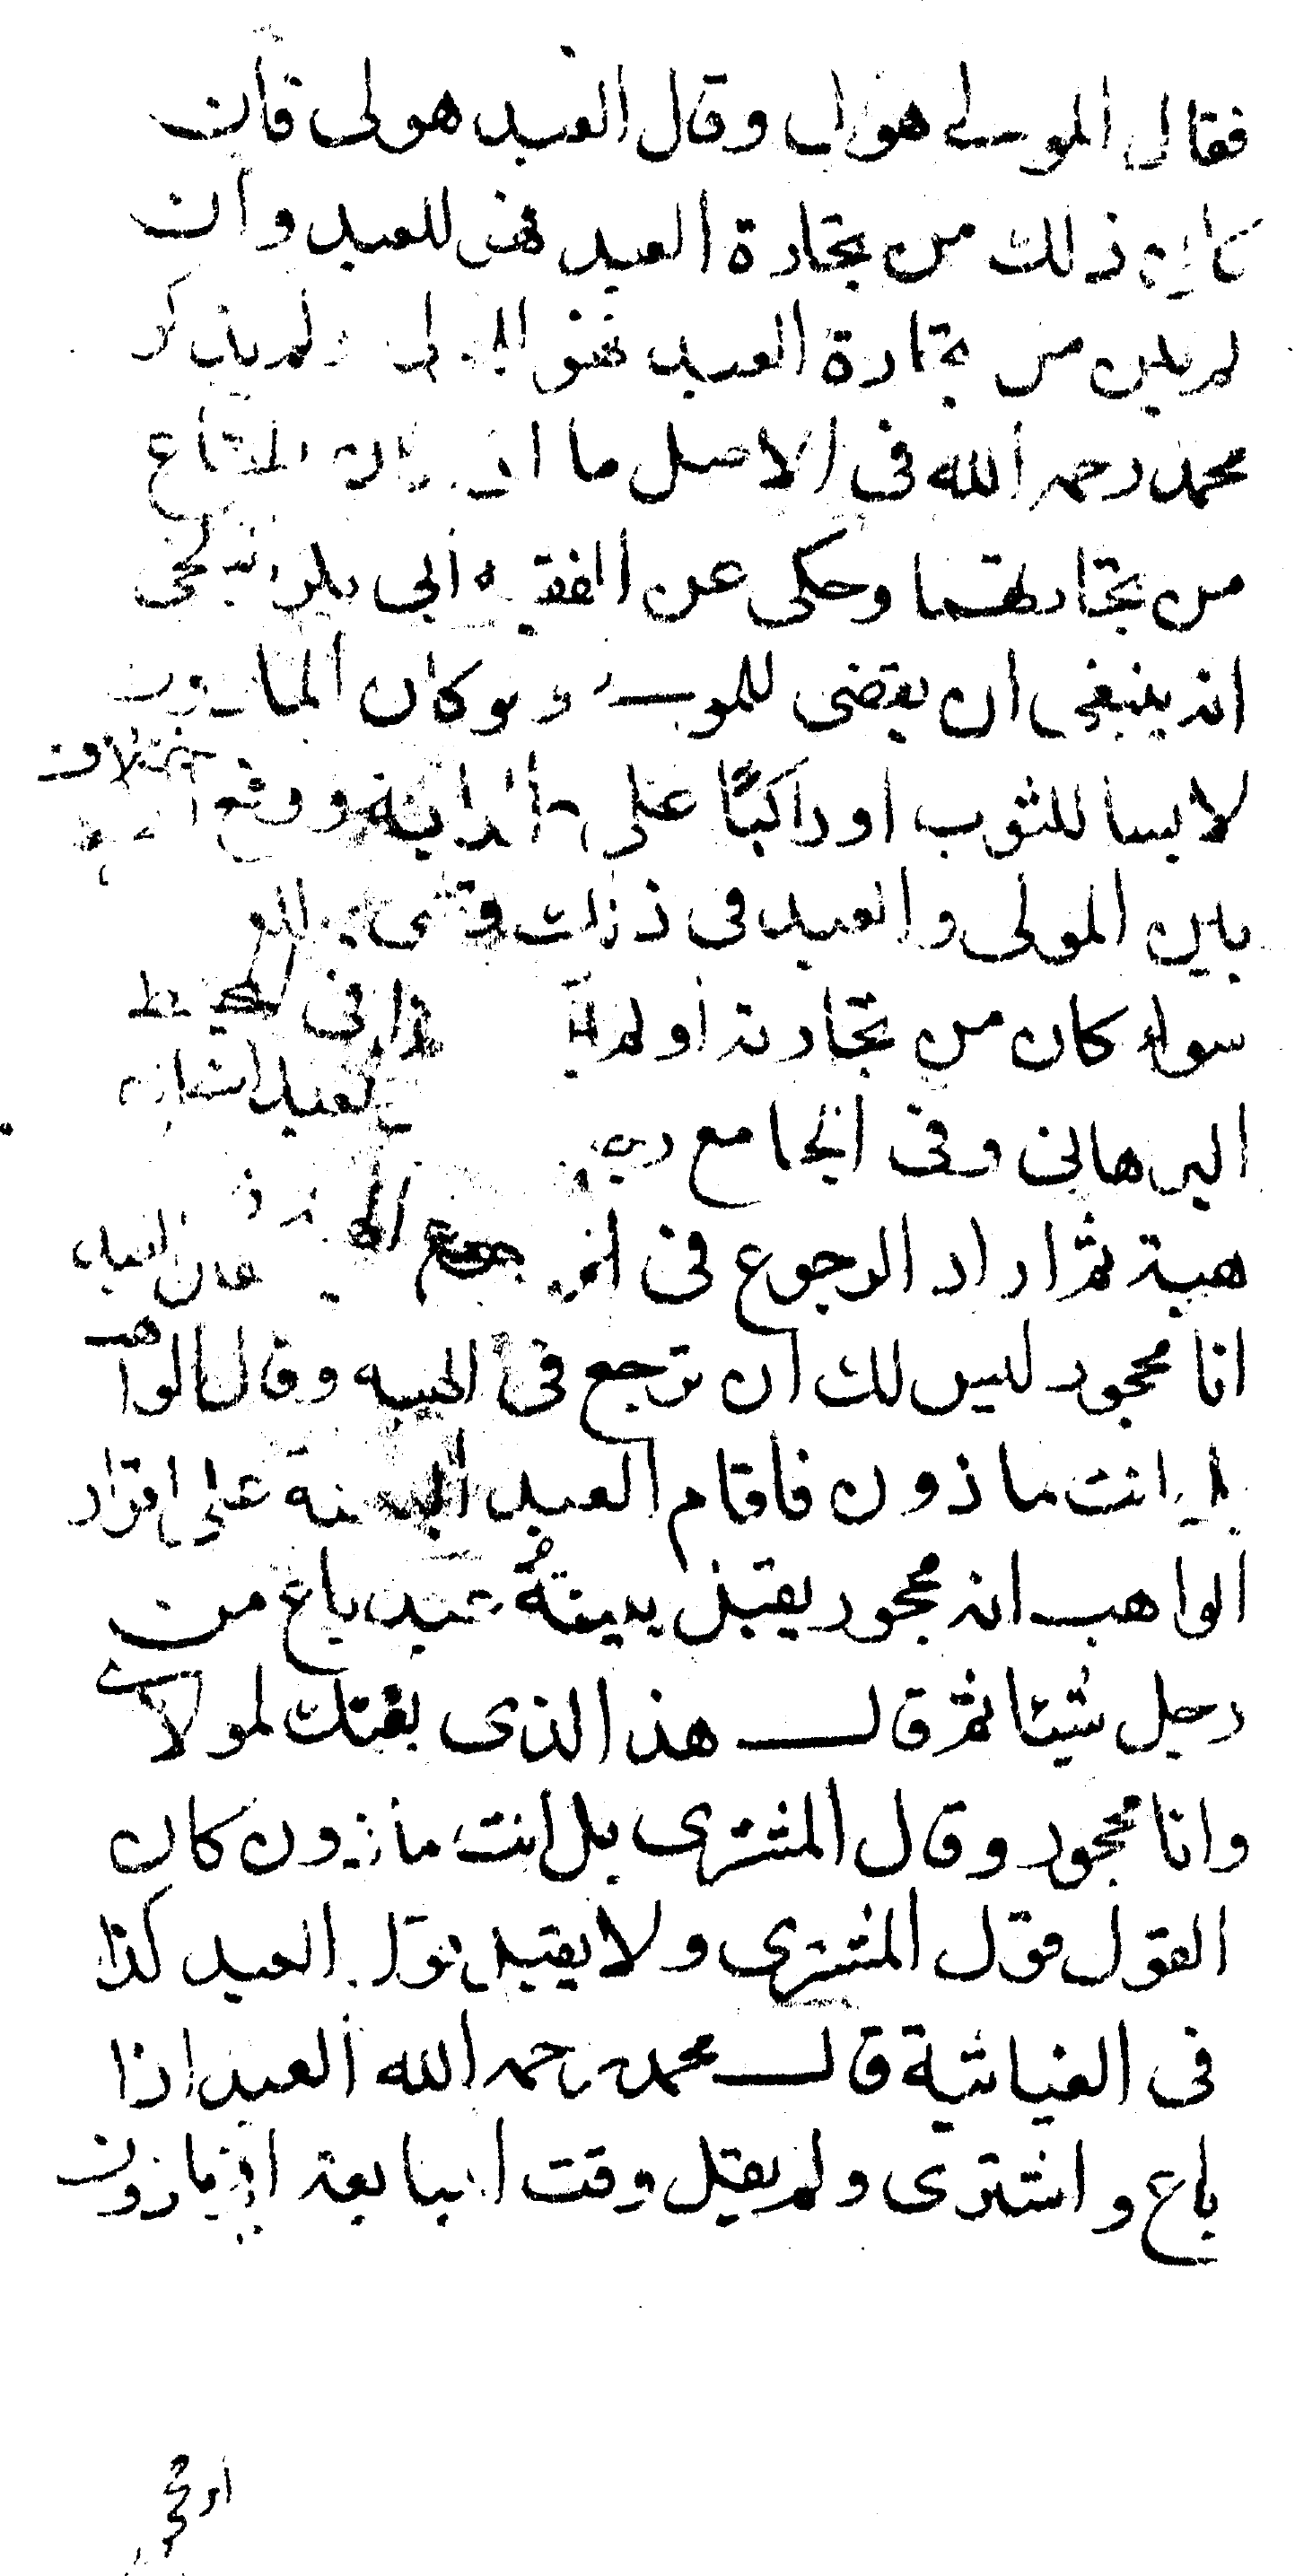 فقال المولى هو لى وقال العبد هو لى فان
كان ذلك من تجارة العبد فهو للعبد وان
لم يكن من تجارة العبد فهو للمولى ولم يذكر
محمد رحمه الله فى الاصل ما اذا كان المتاع
من تجارتهما وحكى عن الفقيه ابى بكر البلخى
انه ينبغى ان يقضى للمولى ولو كان الماذون
لابسا للثوب او راكبا على الدابة ووقع اختلاف
بين المولى والعبد فى ذلك للعبد
سواء كان من تجارته او لم هكذا فى المحيط
البرهانى وفى الجامع العبد
هبة ثم اراد الرجوع فى فقال العبد
انا محجور ليس لك ان ترجع فى الهبه وقال الواهب
بل انت ماذون فاقام العبد البينة على اقرار
الواهب انه محجور يقبل بينته عبد باع من
رجل شيئا ثم قال هذا الذى بعتك لمولاى
وانا محجور وقال المشترى بل انت ماذون كان
القول قول المشترى ولا يقبل قول العبد كذا
فى الغياثية قال محمد رحمه الله العبد اذا
باع واشترى ولم يقل وقت المبايعة انى ماذون
او محجور